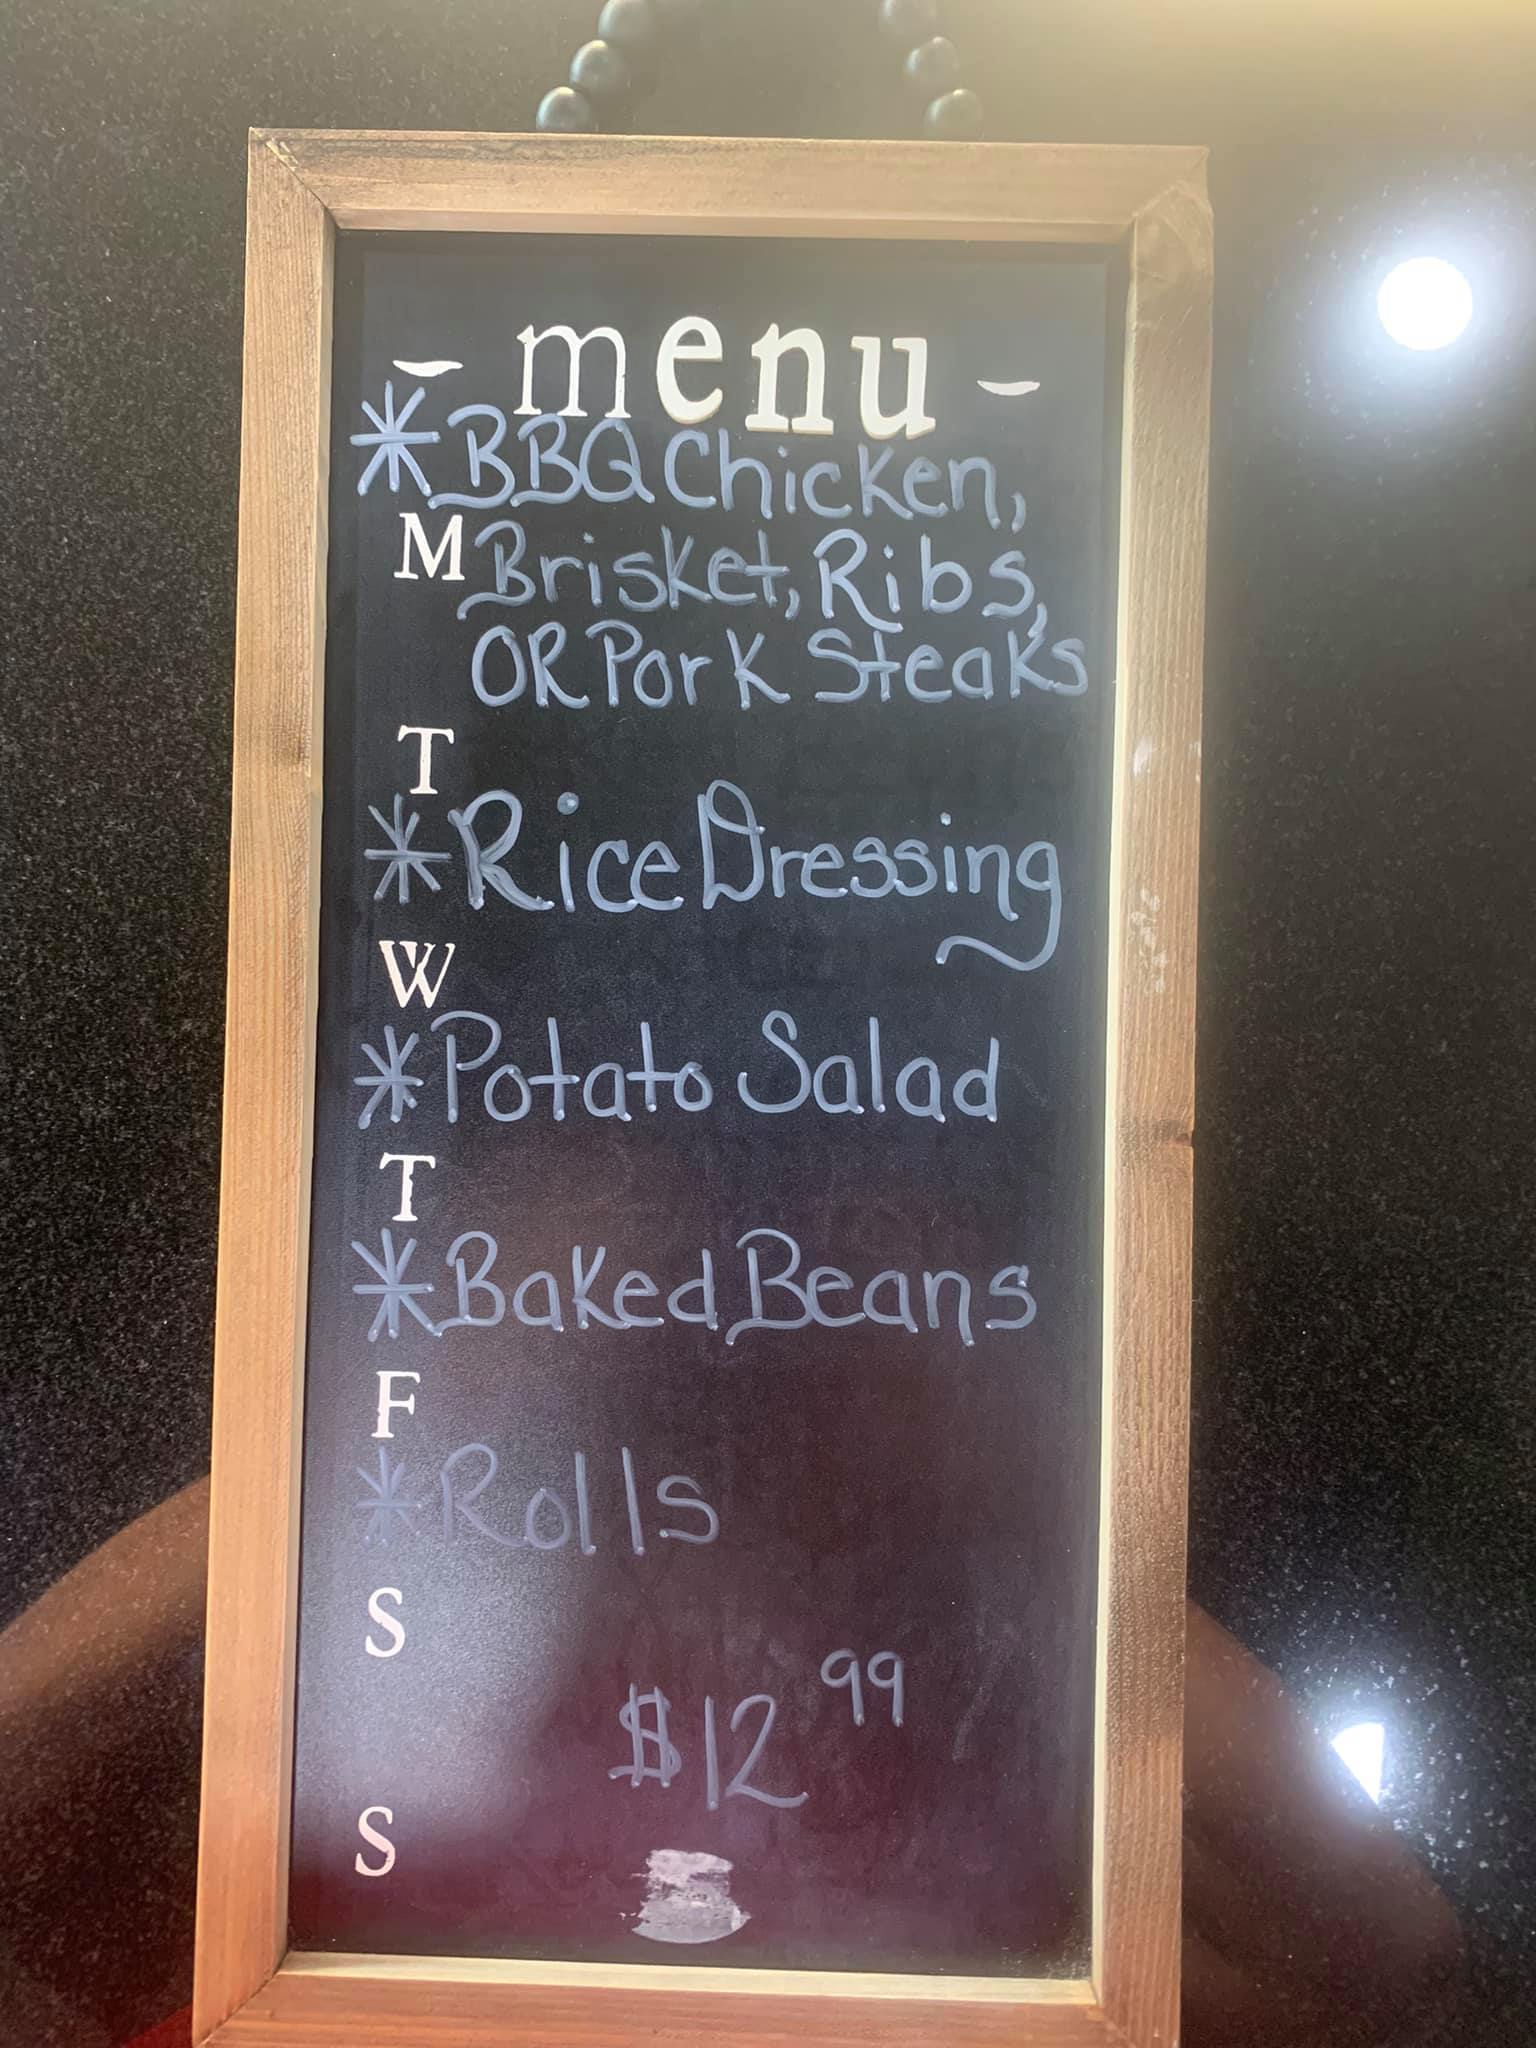 - menu -
* BBQ Chicken,
M
Brisket, Ribs,
OR Pork Steaks
T
* Rice Dressing
W
* Potato Salad
T
* Baked Beans
F
* Rolls
S
$12 99
S